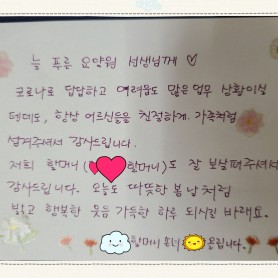 늘 푸른 요양원 선생님께 ♡
코로나로 답답하고 어려움도 많은 업무 상황이실
텐데도, 항상 어르신들을 친절하게, 가족처럼
섬겨주셔서 감사드립니다.
저희 할머니( 할머니)도 잘 보살펴주셔서
감사드립니다. 오늘도 따뜻한 봄날처럼
밝고 행복한 웃음 가득한 하루 되시길 바래요.
할머니 손녀 올림니다.